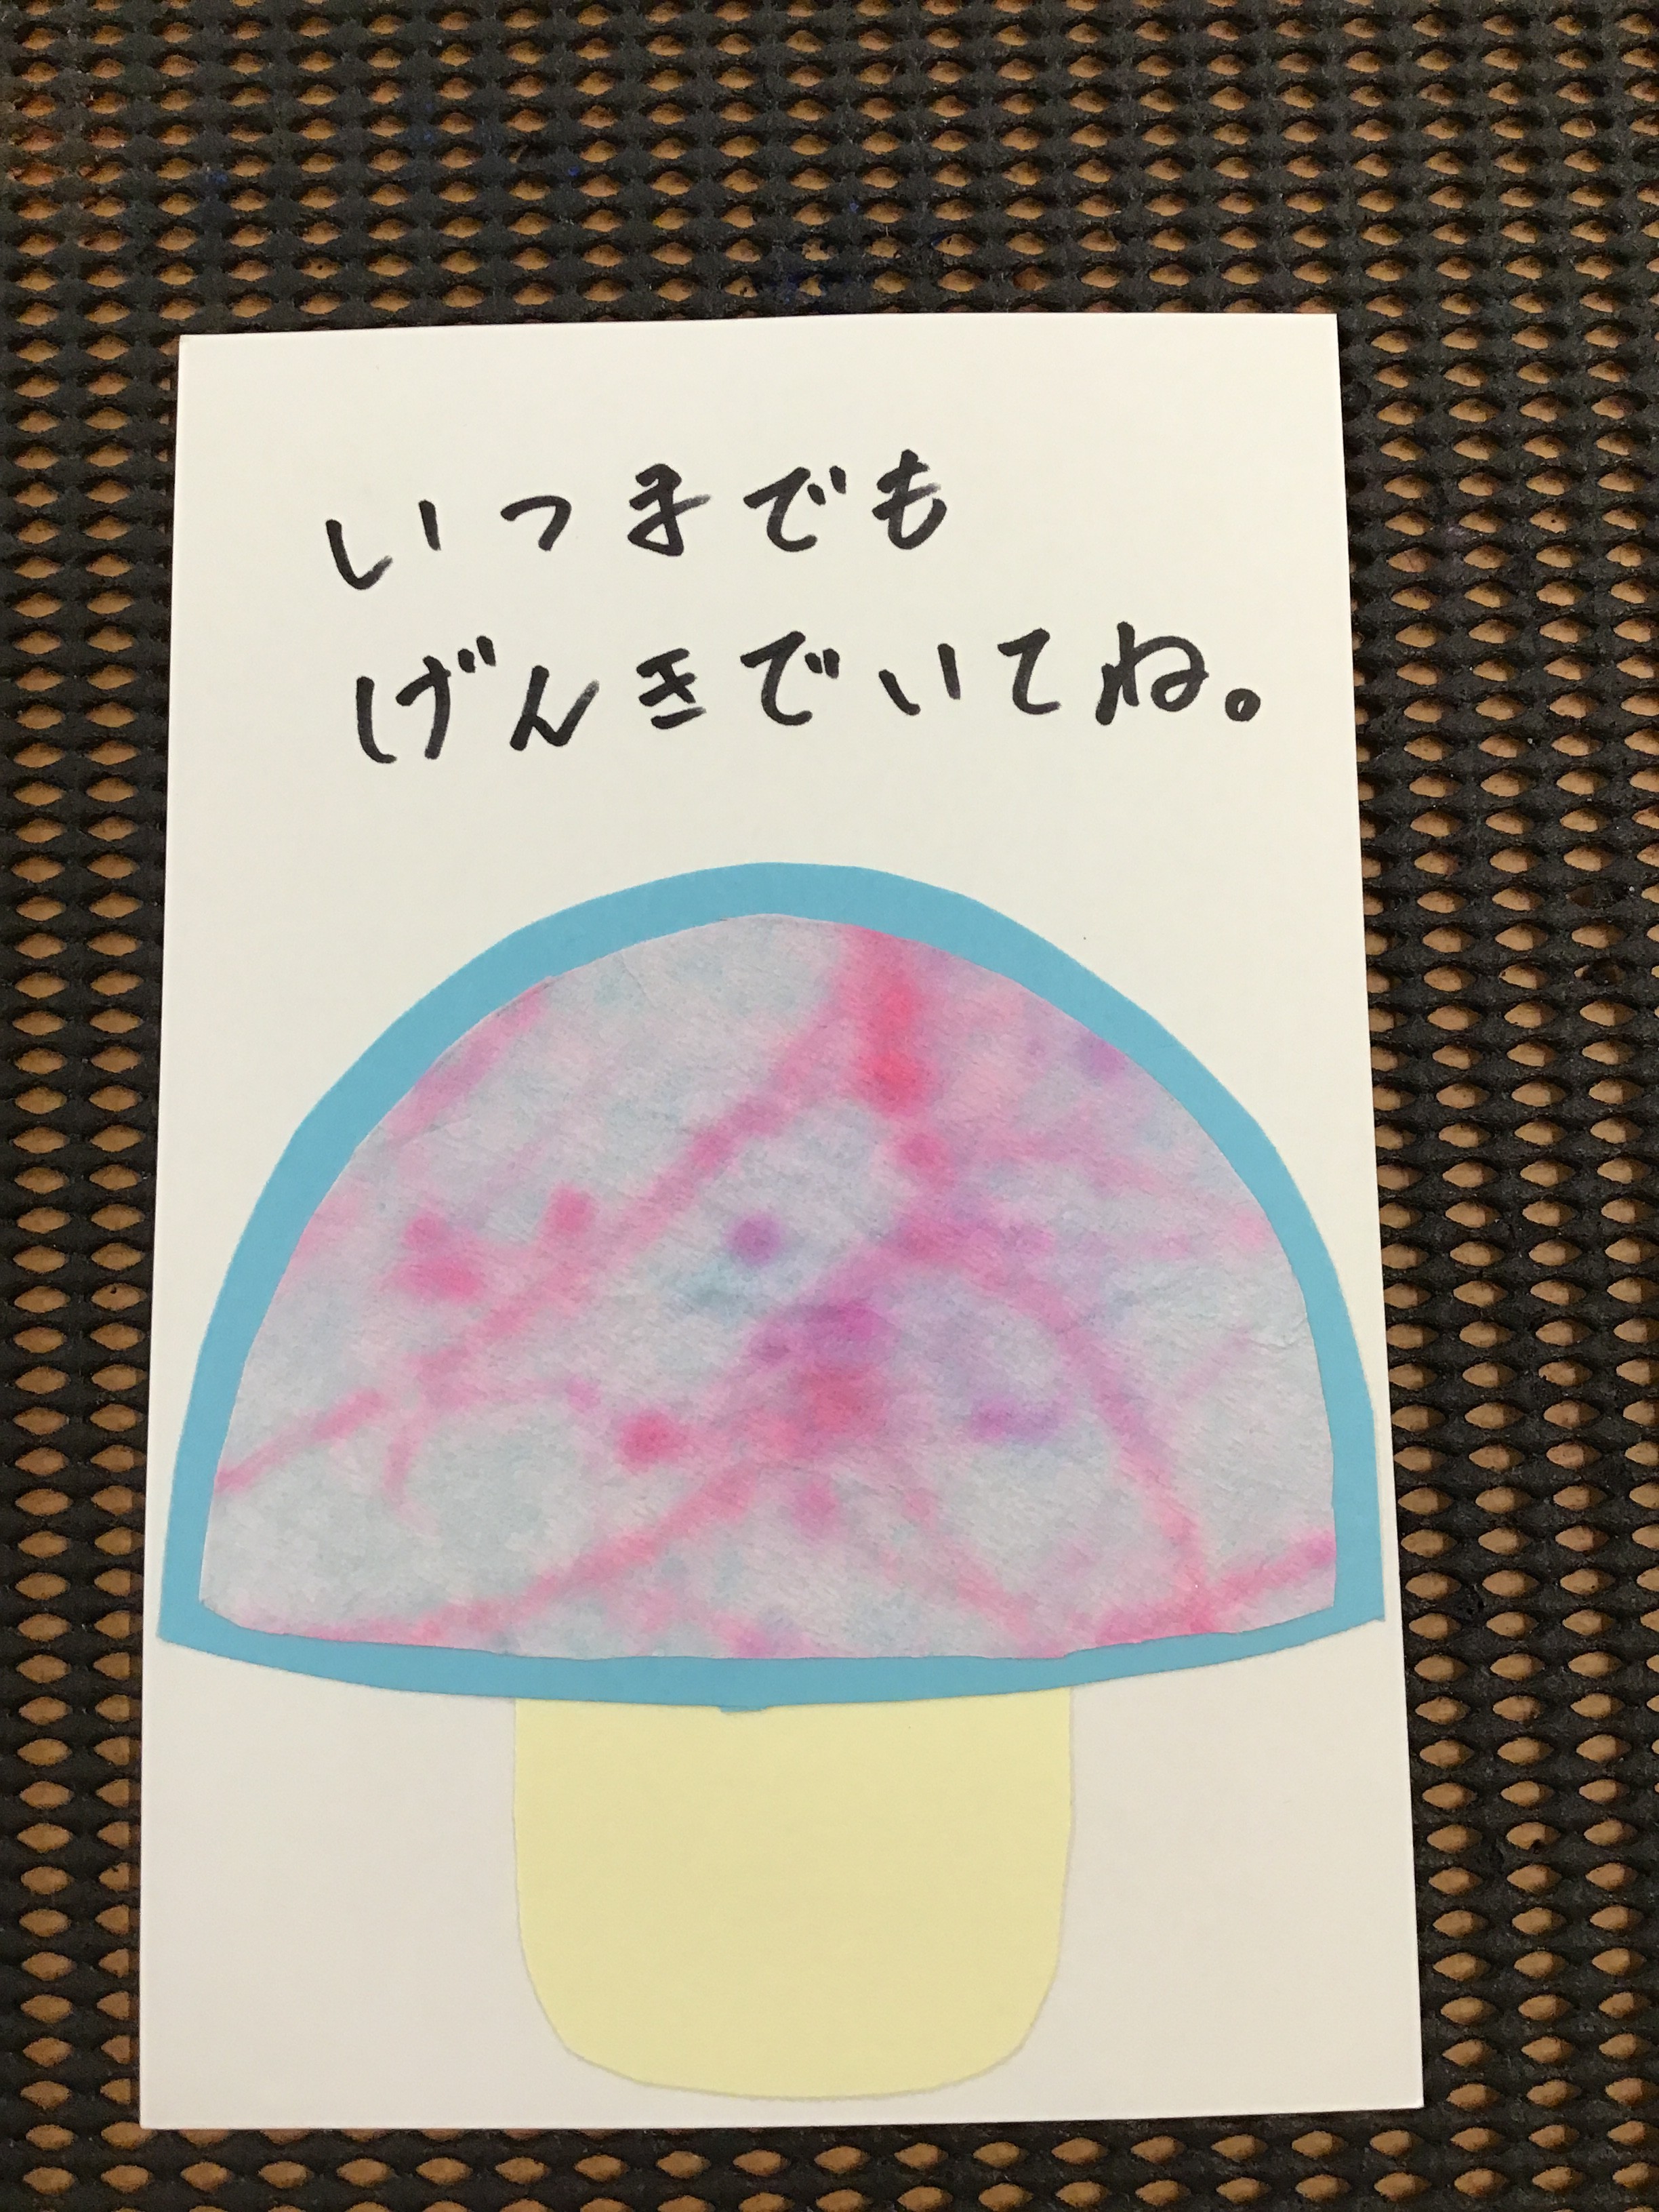 いつまでも
げんきでいてね。